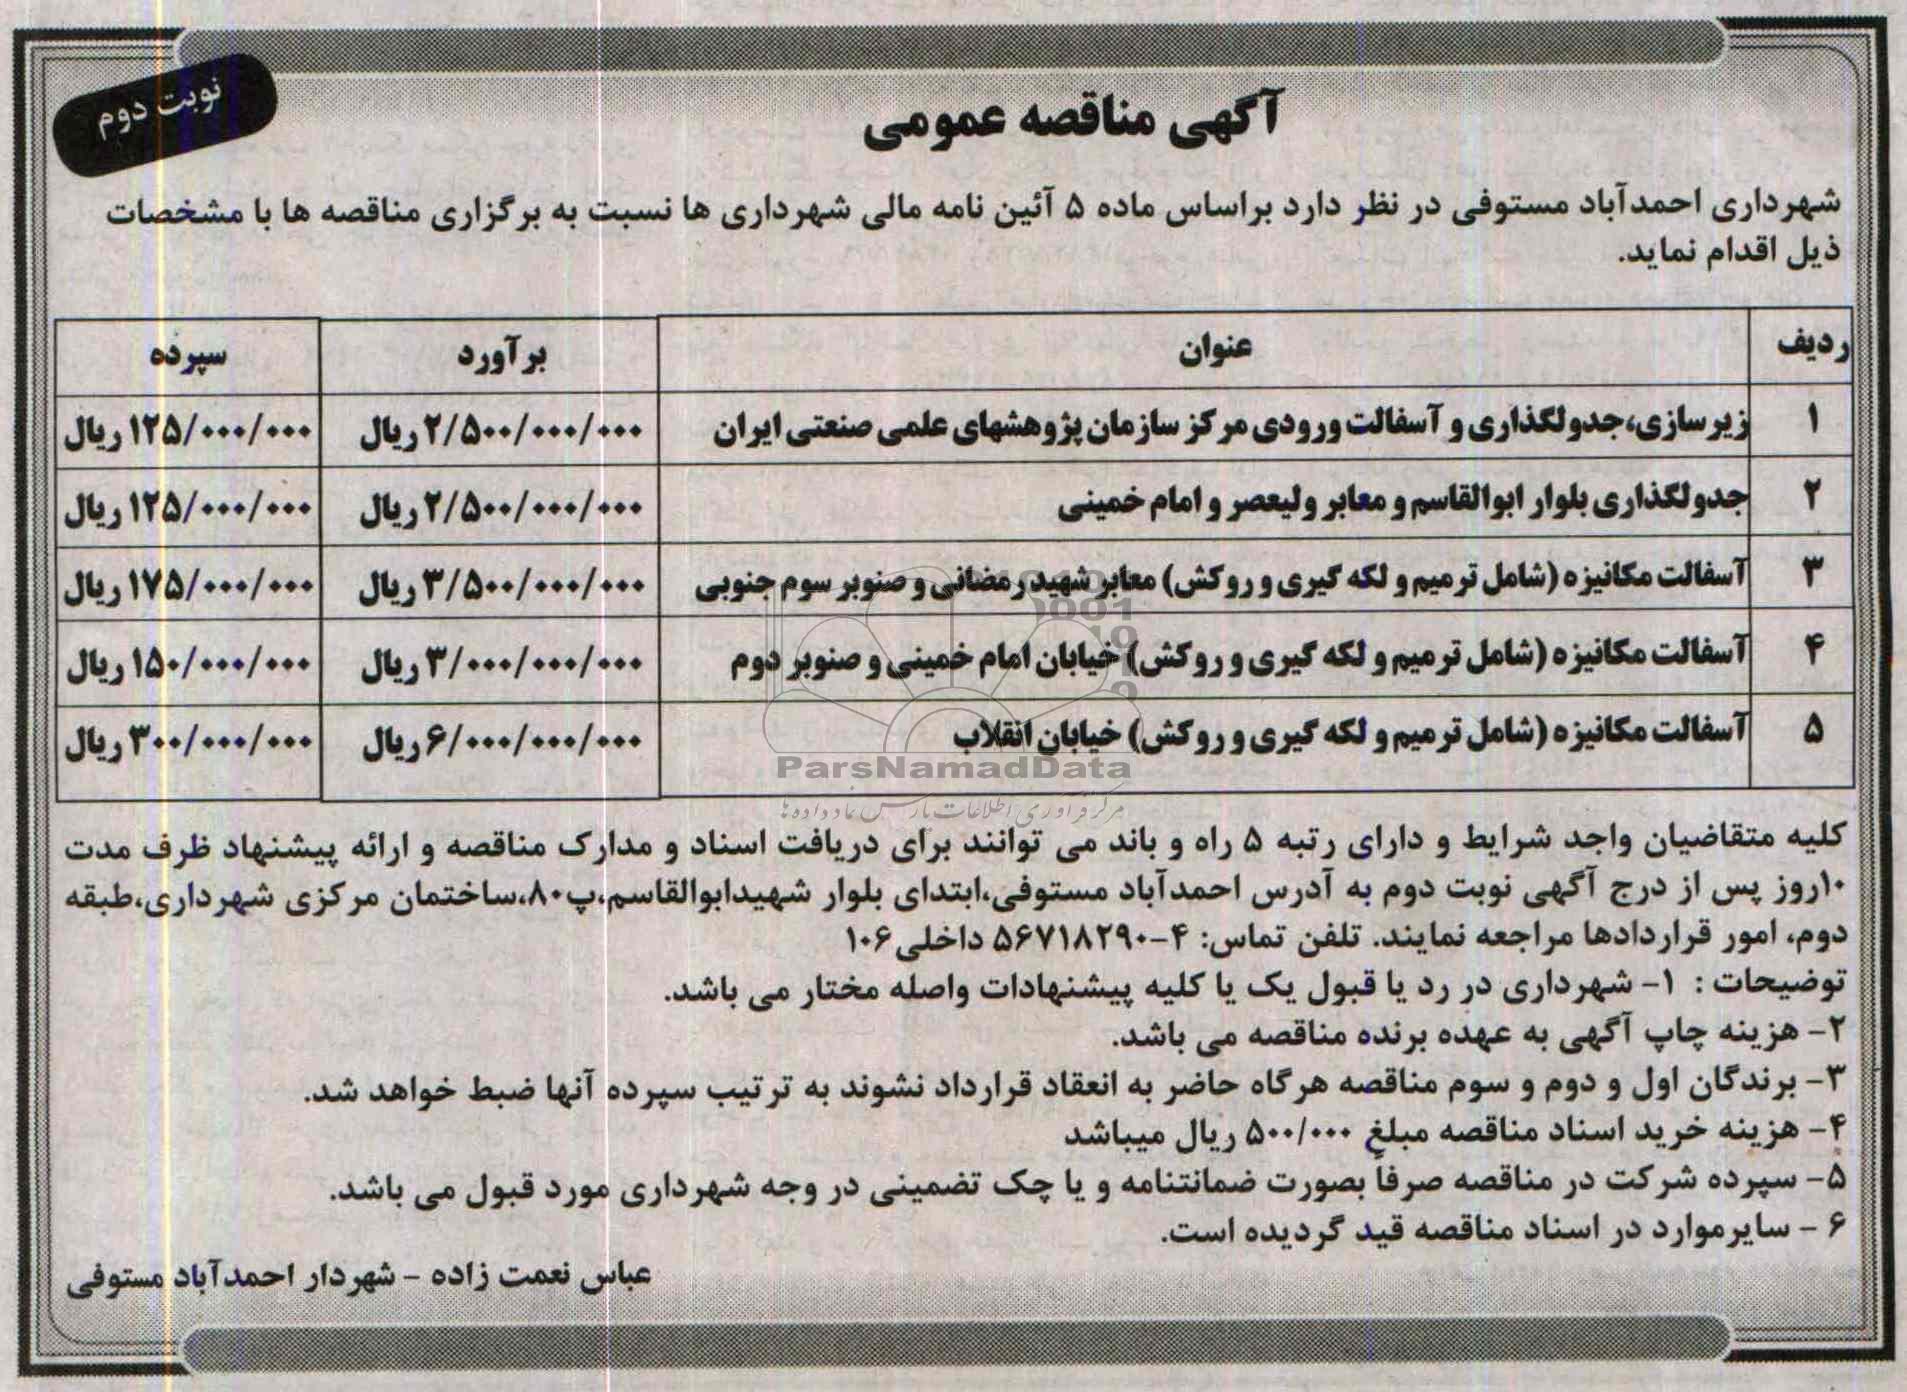 نوبت دوم
آگهی مناقصه عمومی
شهرداری احمدآباد مستوفی در نظر دارد براساس ماده ۵ آئین نامه مالی شهرداری ها نسبت به برگزاری مناقصه ها با مشخصات
ذیل اقدام نماید.
ردیف عنوان برآورد سپرده
۱ زیرسازی،جدولگذاری و آسفالت ورودی مرکز سازمان پژوهشهای علمی صنعتی ایران ۲/۵۰۰/۰۰۰/۰۰۰ ریال ۱۲۵/۰۰۰/۰۰۰ ریال
۲ جدولگذاری بلوار ابوالقاسم و معابر ولیعصر و امام خمینی ۲/۵۰۰/۰۰۰/۰۰۰ ریال ۱۲۵/۰۰۰/۰۰۰ ریال
۳ آسفالت مکانیزه (شامل ترمیم و لکه گیری و روکش) معابر شهید رمضانی و صنوبر سوم جنوبی ۳/۵۰۰/۰۰۰/۰۰۰ ریال ۱۷۵/۰۰۰/۰۰۰ ریال
۴ آسفالت مکانیزه (شامل ترمیم و لکه گیری و روکش) خیابان امام خمینی و صنوبر دوم ۳/۰۰۰/۰۰۰/۰۰۰ ریال ۱۵۰/۰۰۰/۰۰۰ ریال
۵ آسفالت مکانیزه (شامل ترمیم و لکه گیری و روکش) خیابان انقلاب ۶/۰۰۰/۰۰۰/۰۰۰ ریال ۳۰۰/۰۰۰/۰۰۰ ریال
ParsNamadData
مرکز فرآوری اطلاعات پارس نماد داده ها
کلیه متقاضیان واجد شرایط و دارای رتبه ۵ راه و باند می توانند برای دریافت اسناد و مدارک مناقصه و ارائه پیشنهاد ظرف مدت
۱۰روز پس از درج آگهی نوبت دوم به آدرس احمدآباد مستوفی،ابتدای بلوار شهیدابوالقاسم،پ۸۰،ساختمان مرکزی شهرداری،طبقه
دوم، امور قراردادها مراجعه نمایند. تلفن تماس: ۴-۵۶۷۱۸۲۹۰ داخلی ۱۰۶
توضیحات : ۱- شهرداری در رد یا قبول یک یا کلیه پیشنهادات واصله مختار می باشد.
۲- هزینه چاپ آگهی به عهده برنده مناقصه می باشد.
۳- برندگان اول و دوم و سوم مناقصه هرگاه حاضر به انعقاد قرارداد نشوند به ترتیب سپرده آنها ضبط خواهد شد.
۴- هزینه خرید اسناد مناقصه مبلغ ۵۰۰/۰۰۰ ریال میباشد
۵- سپرده شرکت در مناقصه صرفاً بصورت ضمانتنامه و یا چک تضمینی در وجه شهرداری مورد قبول می باشد.
۶ - سایرموارد در اسناد مناقصه قید گردیده است.
عباس نعمت زاده - شهردار احمدآباد مستوفی